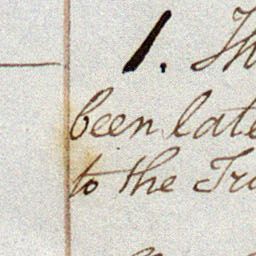 1. Th
been late
to the Tru